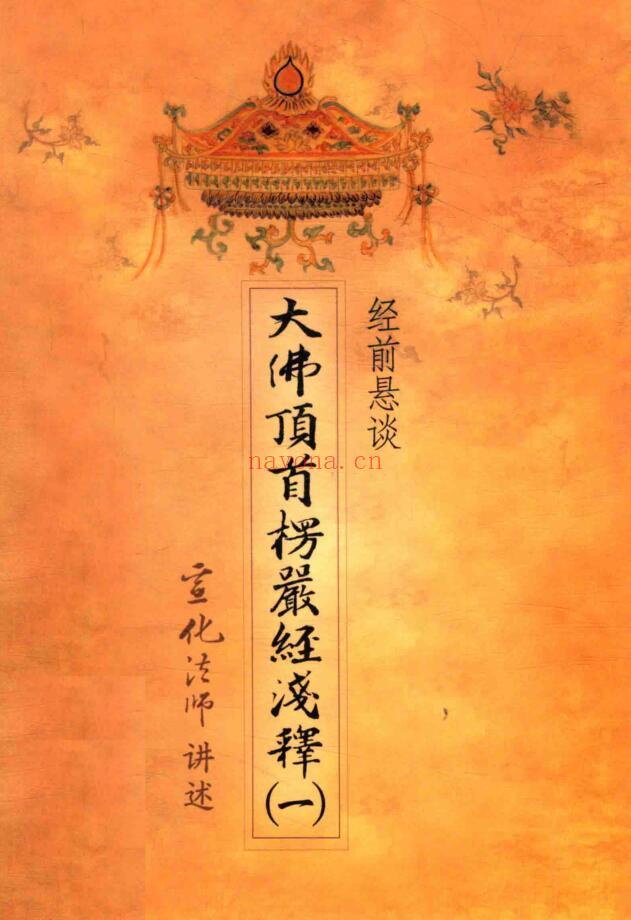 经前悬谈
大佛頂首楞嚴經淺釋(一)
宣化法师 讲述
navona.cn